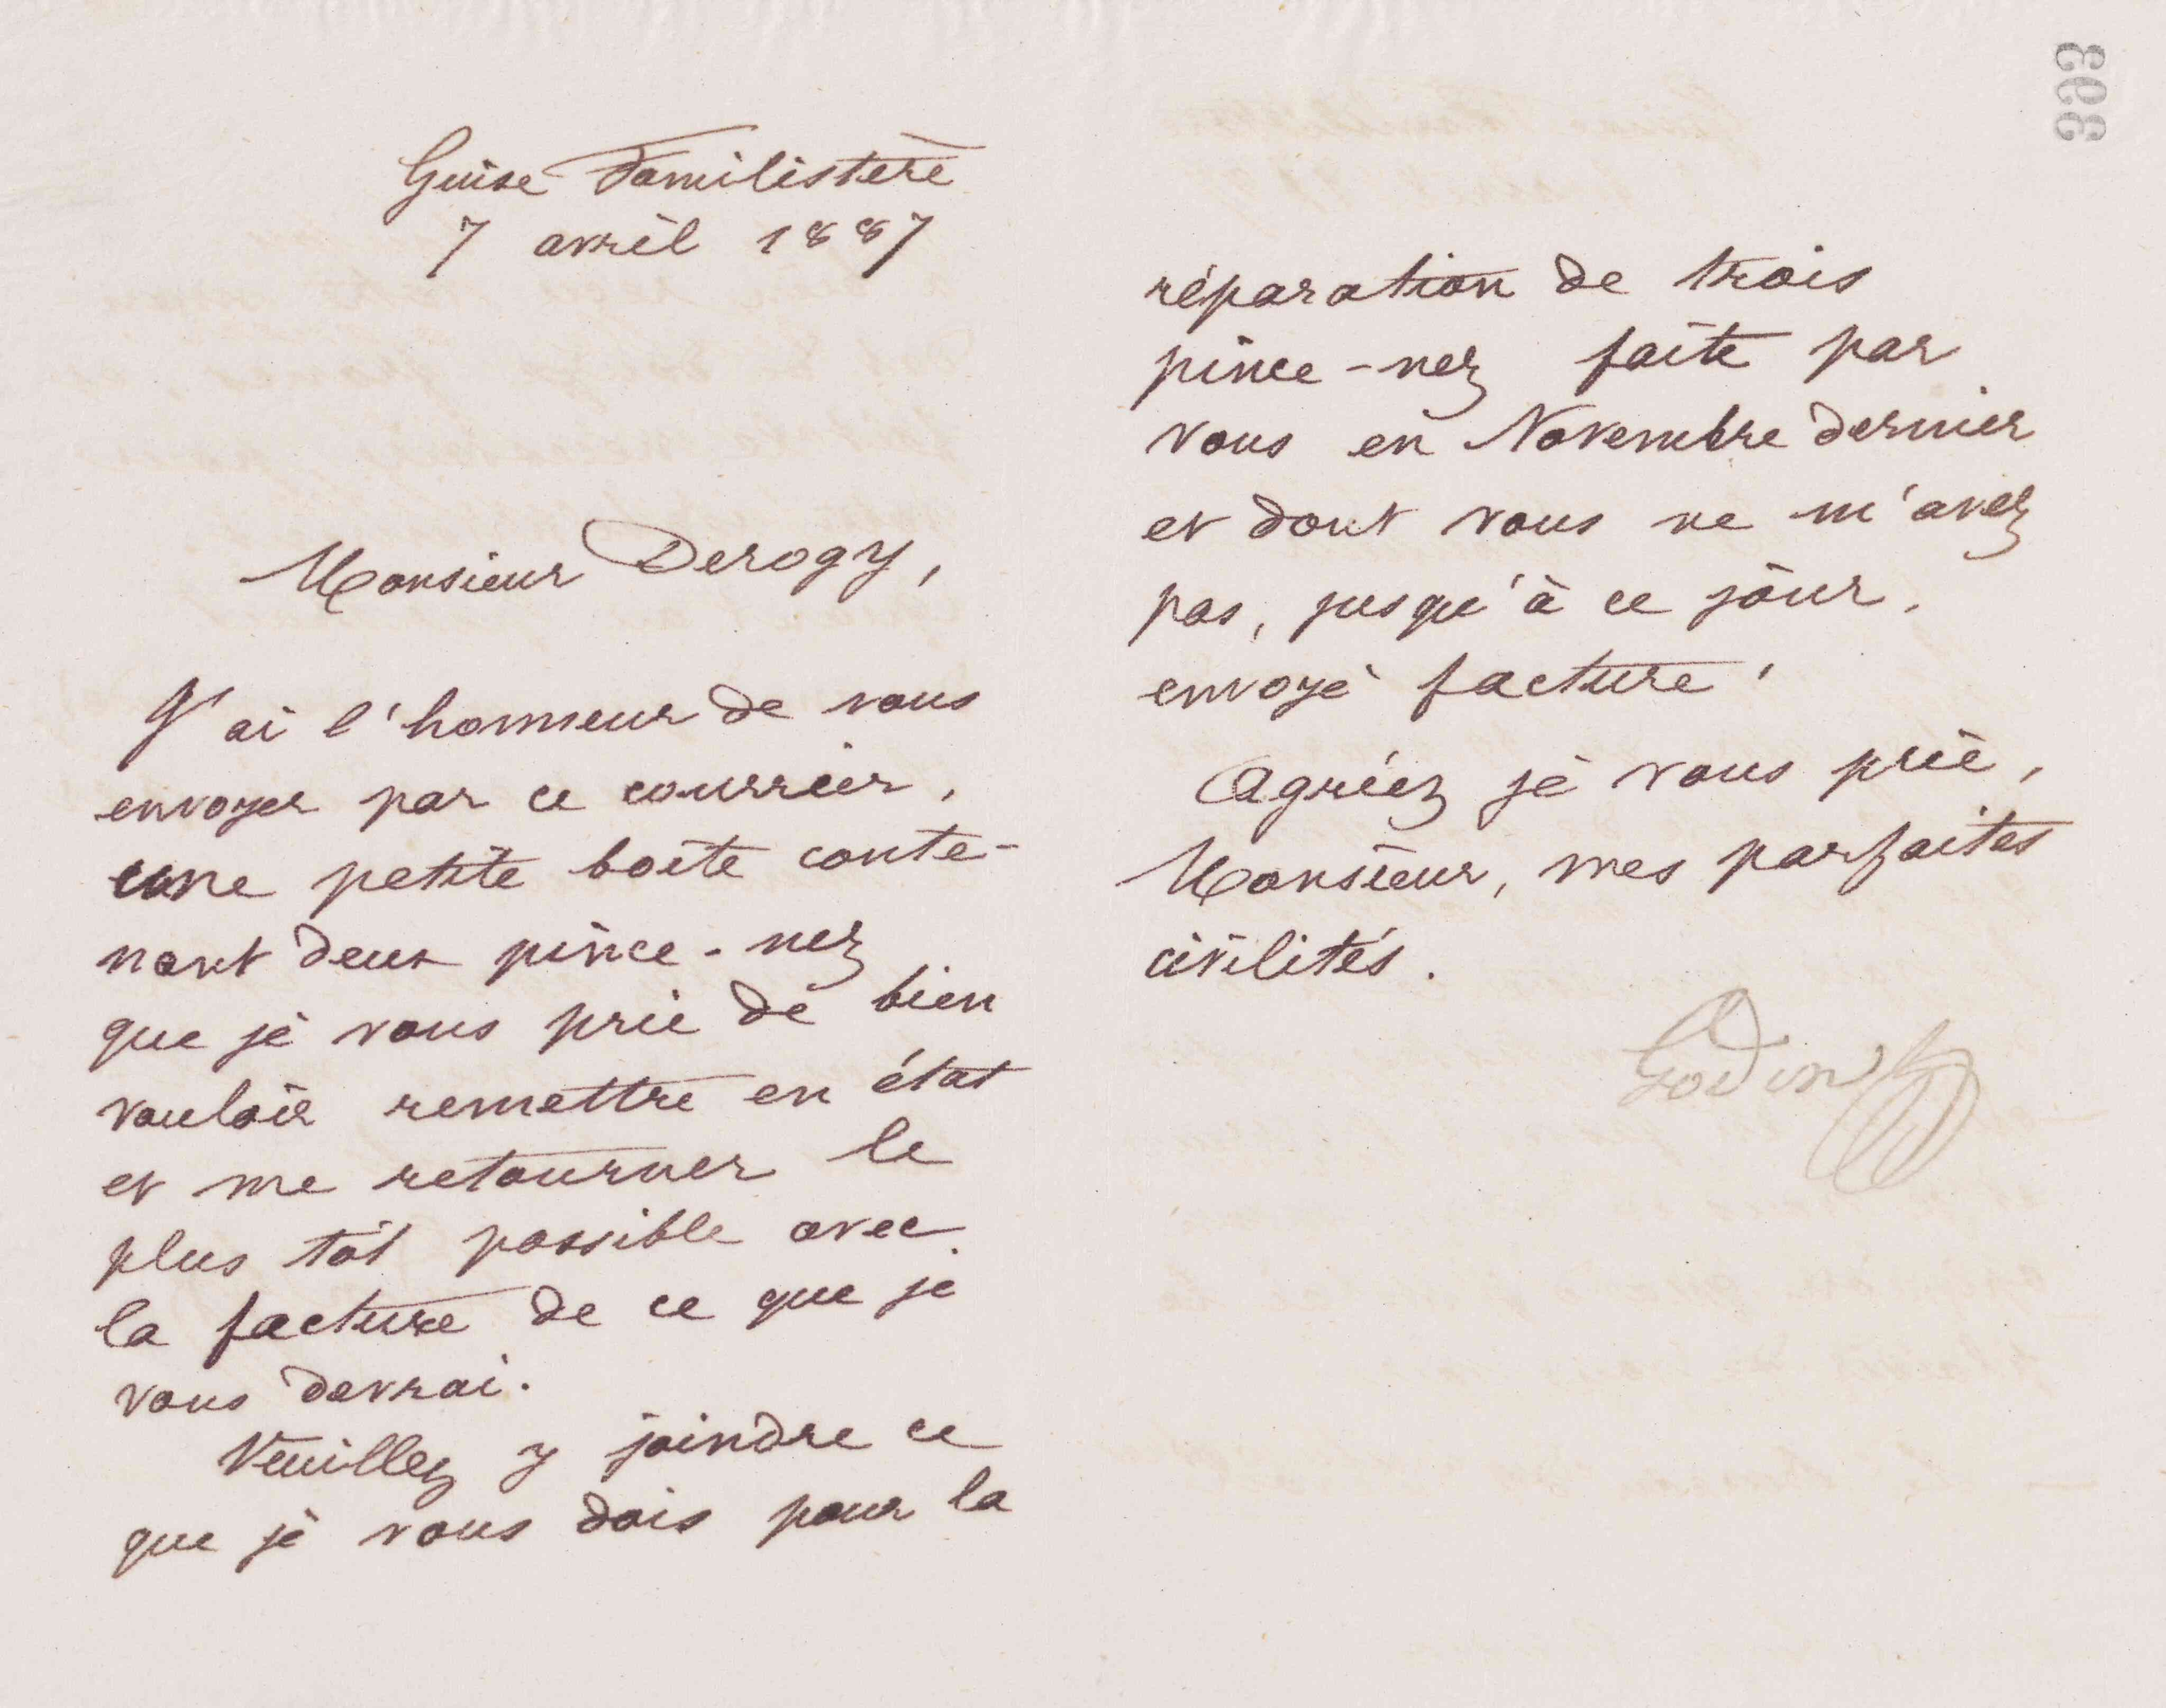 Guise Familistère
7 avril 1887
Monsieur Derogy,
J'ai l'honneur de vous
envoyer par ce courrier,
une petite boîte conte-
nant deux pince-nez
que je vous prie de bien
vouloir remettre en état
et me retourner le
plus tôt possible avec
la facture de ce que je
vous devrai.
Veuillez y joindre ce
que je vous dois pour la
393
réparation de trois
pince-nez faite par
vous en Novembre dernier
et dont vous ne m'avez
pas, jusqu'à ce jour,
envoyé facture.
Agréez je vous prie,
Monsieur, mes parfaites
civilités.
Godin